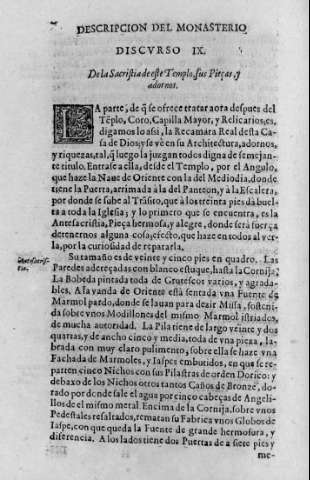 DESCRIPCION DEL MONASTERIO
DISCVRSO IX.
De la Sacristia de este Templo, sus Pieças, y
adornos.
LA parte, de q̃ se ofrece tratar aora despues del
Tẽplo, Coro, Capilla Mayor, y Relicarios, es,
digamoslo assi, la Recamara Real desta Ca-
sa de Dios; y se vè en su Architectura, adornos,
y riquezas, tal, q̃ luego la juzgan todos digna de semejan-
te titulo. Entrase a ella, desde el Templo, por el Angulo,
que haze la Naue de Oriente con la del Mediodia, donde
tiene la Puerta, arrimada à la del Panteon, y à la Escalera,
por donde se sube al Trãsito, que à los treinta pies dà buel-
ta a toda la Iglesia; y lo primero que se encuentra, es la
Antesacristia, Pieça hermosa, y alegre, donde serà fuerça
detenernos alguna cosa, efecto, que haze en todos al ver-
la, por la curiosidad de repararla.
Antesacris-
tia.
Su tamaño es de veinte y cinco pies en quadro. Las
Paredes adereçadas con blanco estuque, hasta la Cornija;
La Bobeda pintada toda de Grutescos varios, y agrada-
bles. A la vanda de Oriente està sentada vna Fuente de
Marmol pardo, donde se lauan para dezir Missa, sosteni-
da sobre vnos Modillones del mismo Marmol istriados,
de mucha autoridad. La Pila tiene de largo veinte y dos
quartas, y de ancho cinco y media, toda de vna pieza, la-
brada con muy claro pulimento, sobre ella se haze vna
Fachada de Marmoles, y Iaspes embutidos, en que se re-
parten cinco Nichos con sus Pilastras de orden Dorico: y
debaxo de los Nichos otros tantos Caños de Bronze, do-
rado por donde sale el agua por cinco cabeças de Angeli-
llos de el mismo metal. Encima de la Cornija, sobre vnos
Pedestales resaltados, rematan su Fabrica vnos Globos de
Iaspe, con que queda la Fuente de grande hermosura, y
diferencia. A los lados tiene dos Puertas de a siete pies y
me-